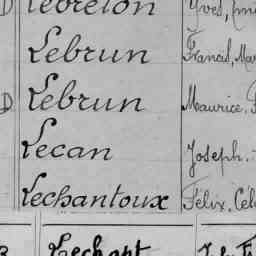 Lebreton Yves, Emi
Lebrun Francis, Mar
D Lebrun Maurice.
Lecan Joseph.
Lechantoux Félix. Cél